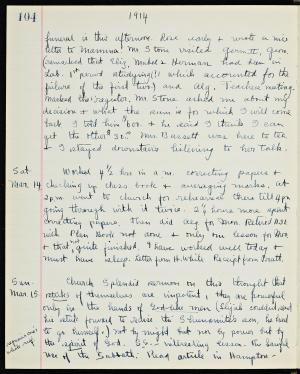 104 1914
funeral is this afternoon. Rose early & wrote a nice
letter to Mamma. Mr Stone visited Germ II, Geom
(remarked that Eliz, Mabel & Herman had been in
lab. 1st period studying(!) which accounted for the
failure of the first two) and Alg. Teachers meeting.
Marked the register. Mr. Stone asked me about my
decision & what the sum is for which I will come
back I told him 800 & he said I think I can
get the other 50. Mr. Bassett was here to tea
I stayed downstairs listening to her talk.
Sat. Mar. 14. Worked 4½ hrs in a.m. correcting papers &
checking up class book & averaging marks. At
2 p.m. went to church for rehearsal there till 4 p.m.
going through with it twice. 2½ hours more spent
correcting papers. Then did Alg for Mon.
with Plan Book not done & only one lesson for Mon
& that not quite finished. I have worked well today &
must have sleep. Letter from H. White. Receipt from Pratt.
Sun. Mar. 15 Church Splendid sermon on this thought that
of themselves are important, they are powerful
only in the hands of God-like men (Elijah
his staff forward to the Shunamite's son, he had
to go himself.) Not by might but nor by power but by
the spirit of God. S.S. - interesting lesson. The lawful
use of the Sabbath. Read article in Hampton-